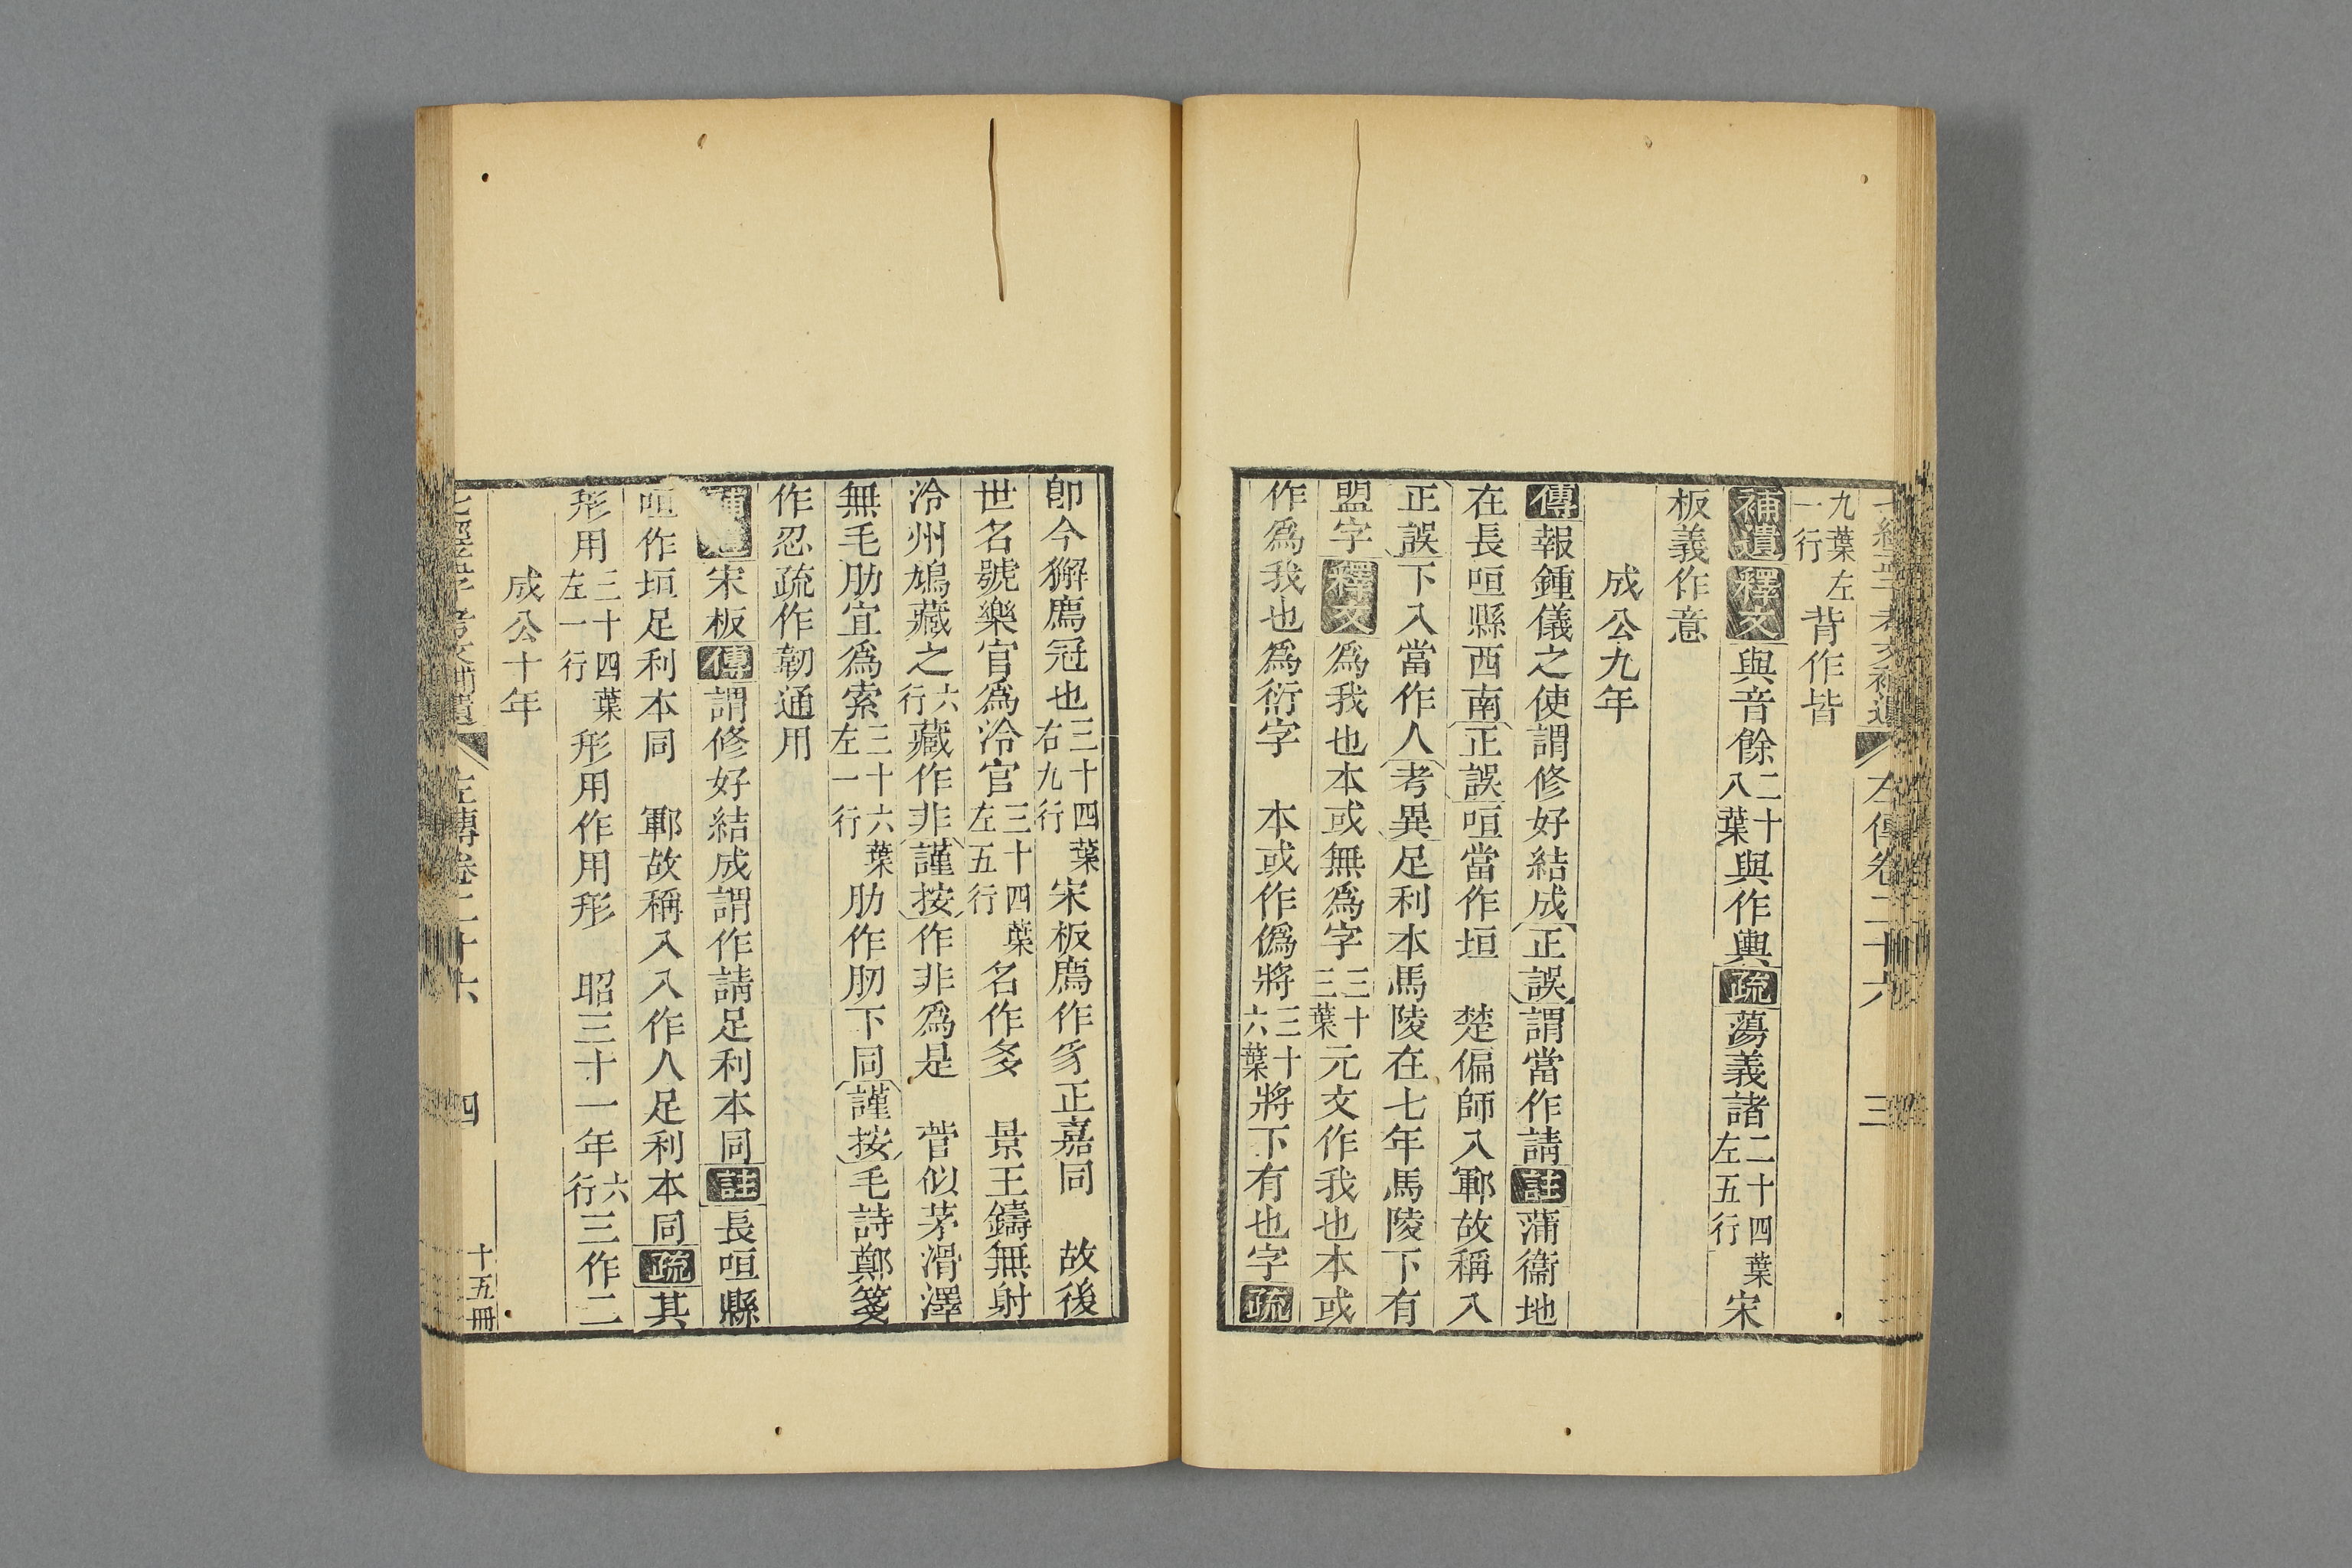 七經孟子考文補遺 左傳卷二十六 三
九葉左一行背作皆
補遺釋文與音餘二十八葉與作輿疏蕩義諸二十四葉左五行宋
板義作意
成公九年
傳報鍾儀之使謂修好結成正誤謂當作請註蒲衞地
在長咺縣西南正誤咺當作垣 楚偏師入鄆故稱入
正誤下入當作人考異足利本馬陵在七年馬陵下有
盟字釋文爲我也本或無爲字三十三葉元文作我也本或
作爲我也爲衍字 本或作僞將三十六葉將下有也字疏
卽今獬廌冠也三十四葉右九行宋板廌作豸正嘉同 故後
世名號樂官爲泠官三十四葉左五行名作多 景王鑄無射
泠州鳩藏之六行藏作非謹按作非爲是 菅似茅滑澤
無毛肋宜爲索三十六葉左一行肋作肕下同謹按毛詩鄭箋
作忍疏作韌通用
補遺宋板傳謂修好結成謂作請足利本同註長咺縣
咺作垣足利本同 鄆故稱入入作人足利本同疏其
形用三十四葉左一行形用作用形 昭三十一年六行三作二
成公十年
七經孟子考文補遺 左傳卷二十六 四 十五冊